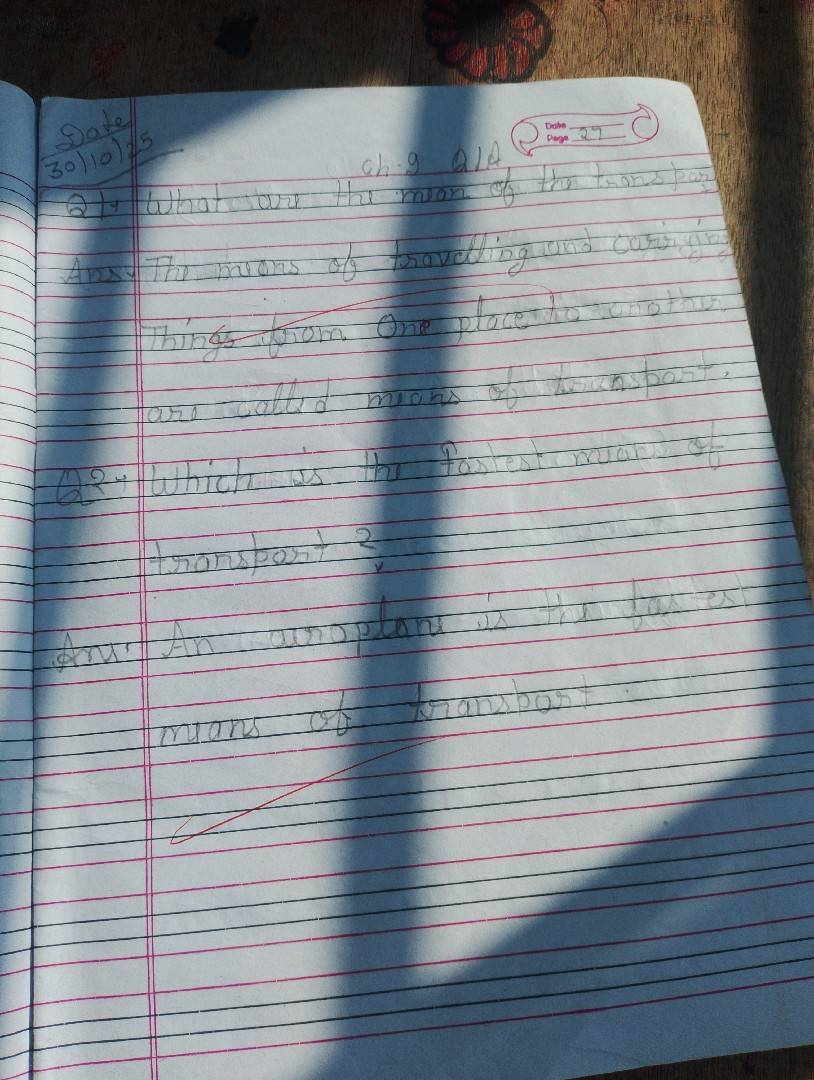 Date
30/10/25
Date
Page 27
Ch-9 Q/A
Q1. What are the mean of the transpor
Ans. The means of travelling and carrying
Things from One place to another
are called means of transport.
Q2. Which is the fastest means of
transport ?
Ans. An airoplane is the fastest
means of transport.